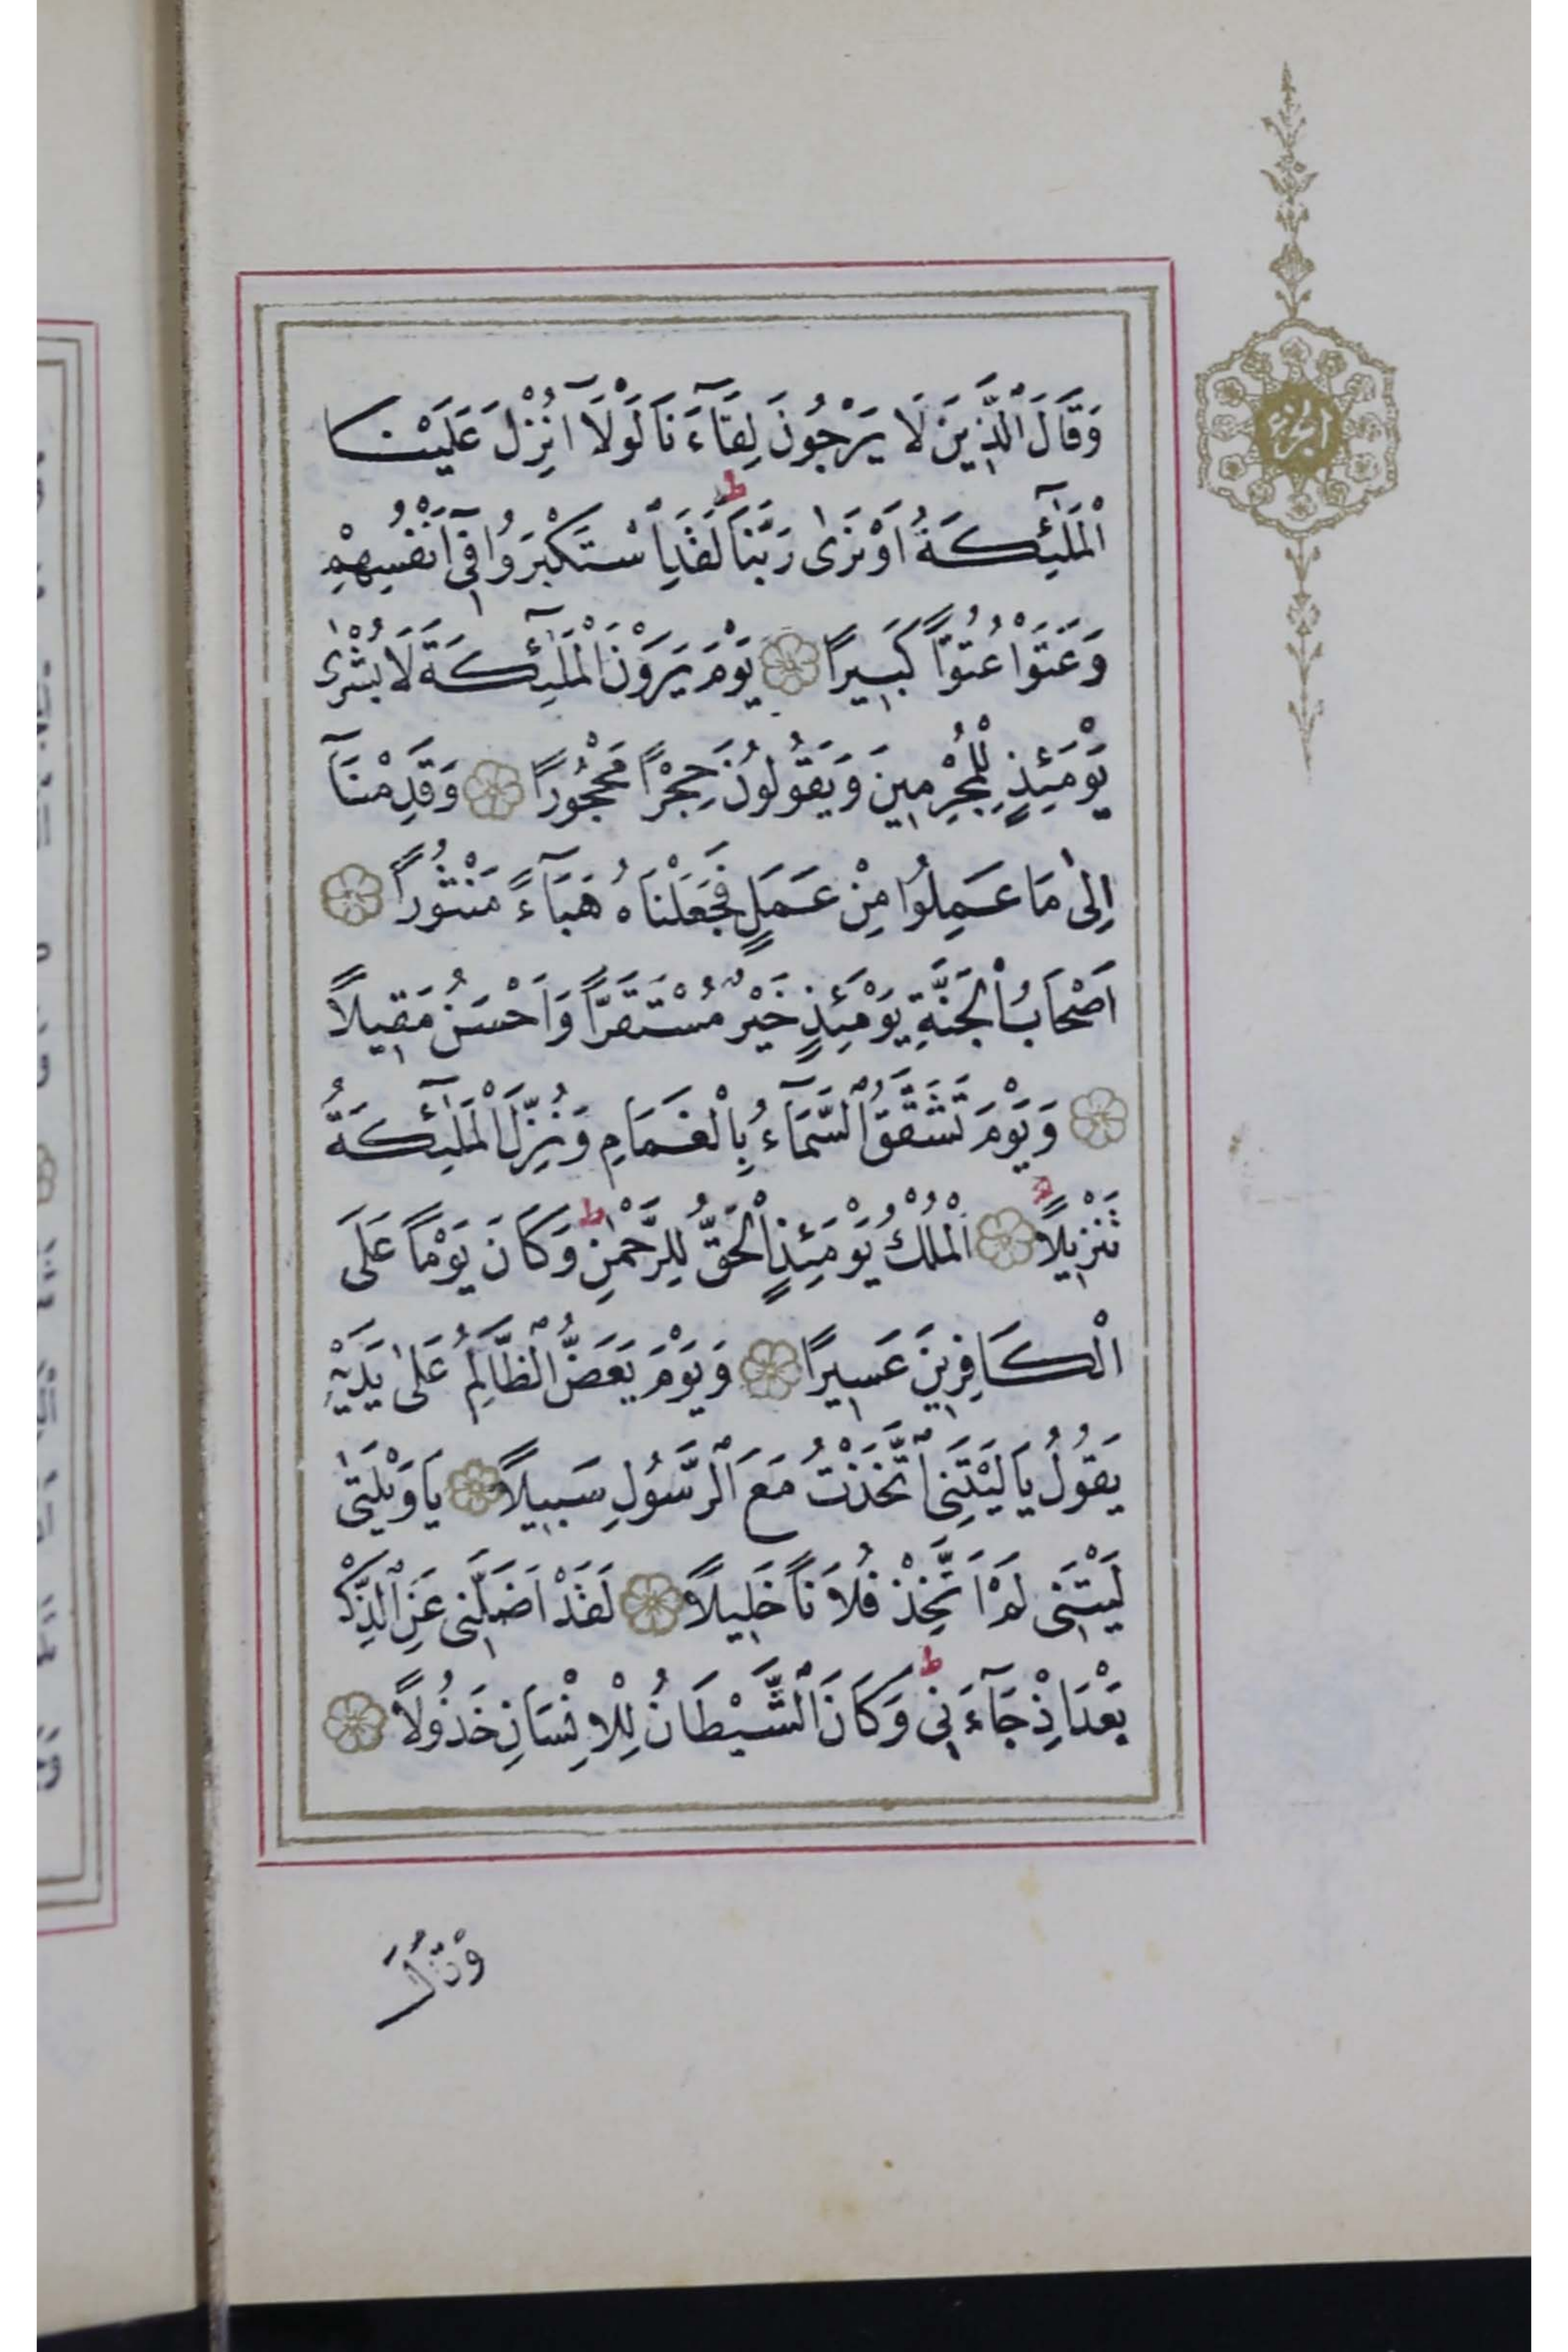 وَقَالَ الَّذِينَ لَا يَرْجُونَ لِقَآءَنَا لَوْلَآ اُنْزِلَ عَلَيْنَا
الْمَلٰٓئِكَةُ اَوْ نَرٰى رَبَّنَا ط لَقَدِ اسْتَكْبَرُوا فِىٓ اَنْفُسِهِمْ
وَعَتَوْا عُتُوًّا كَبِيرًا يَوْمَ يَرَوْنَ الْمَلٰٓئِكَةَ لَا بُشْرٰى
يَوْمَئِذٍ لِلْمُجْرِمِينَ وَيَقُولُونَ حِجْرًا مَحْجُورًا وَقَدِمْنَآ
اِلٰى مَا عَمِلُوا مِنْ عَمَلٍ فَجَعَلْنَاهُ هَبَآءً مَنْثُورًا
اَصْحَابُ الْجَنَّةِ يَوْمَئِذٍ خَيْرٌ مُسْتَقَرًّا وَاَحْسَنُ مَقِيلًا
وَيَوْمَ تَشَقَّقُ السَّمَآءُ بِالْغَمَامِ وَنُزِّلَ الْمَلٰٓئِكَةُ
تَنْزِيلًا اَلْمُلْكُ يَوْمَئِذٍ الْحَقُّ لِلرَّحْمٰنِ ط وَكَانَ يَوْمًا عَلَى
الْكَافِرِينَ عَسِيرًا وَيَوْمَ يَعَضُّ الظَّالِمُ عَلٰى يَدَيْهِ
يَقُولُ يَا لَيْتَنِى اتَّخَذْتُ مَعَ الرَّسُولِ سَبِيلًا يَا وَيْلَتٰى
لَيْتَنِى لَمْ اَتَّخِذْ فُلَانًا خَلِيلًا لَقَدْ اَضَلَّنِى عَنِ الذِّكْرِ
بَعْدَ اِذْ جَآءَنِى ط وَكَانَ الشَّيْطَانُ لِلْاِنْسَانِ خَذُولًا
الجزء